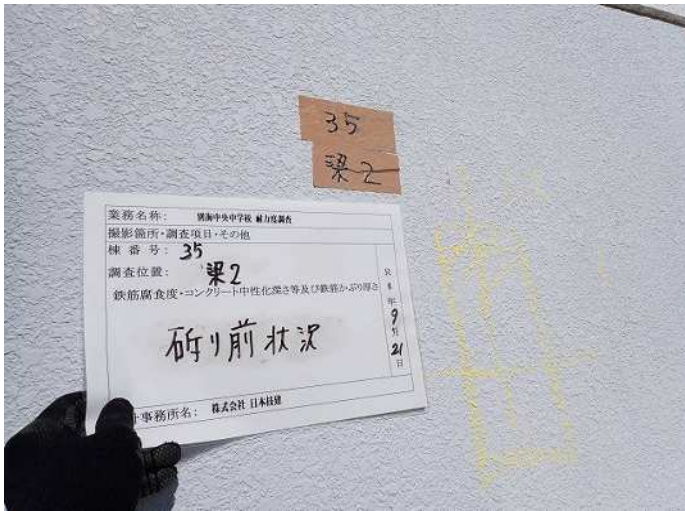 35
梁2
業務名称: 別海中央中学校 耐力度調査
撮影箇所・調査項目・その他
棟番号: 35
調査位置: 梁2
鉄筋腐食度・コンクリート中性化深さ等及び鉄筋かぶり厚さ
斫り前状況
年9月21日
計事務所名: 株式会社 日本技建